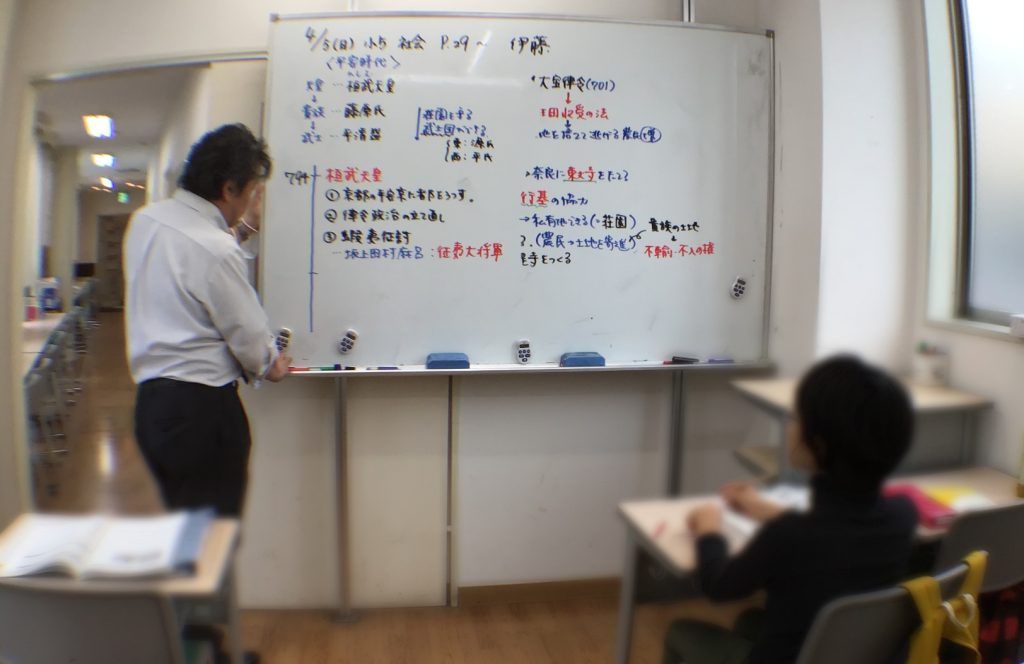 4/5(日) 小5 社会 P.29～ 伊藤
〈平安時代〉
天皇 … 桓武天皇
貴族 … 藤原氏
武士 … 平清盛
荘園を守る
武士団ができる
東：源氏
西：平氏
794 桓武天皇
① 京都の平安京に都をうつす。
② 律令政治の立て直し
③ 蝦夷征討
… 坂上田村麻呂：征夷大将軍
・大宝律令(701)
田収受の法
地を捨てて逃げる農民(増)
・奈良に東大寺をたてる
行基の協力
→私有地できる(=荘園)
貴族の土地
(農民→土地を寄進)
不輸・不入の権
寺をつくる